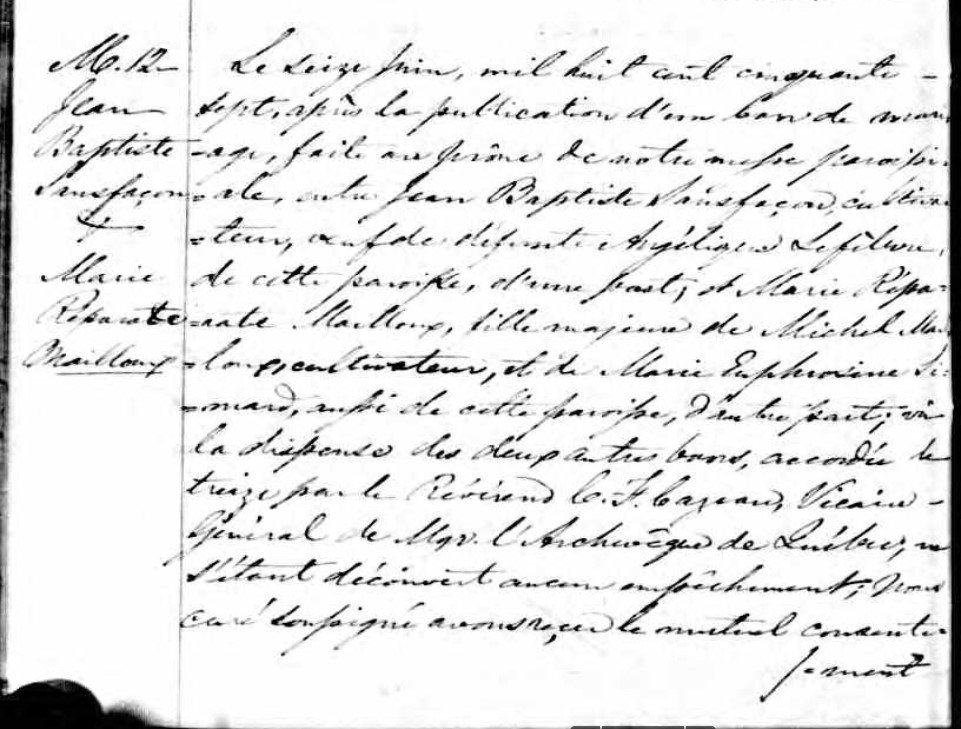 M. 12
Jean
Baptiste
Sansfaçon
&
Marie
Réparate
Mailloux
Le seize Juin, mil huit cent cinquante-
sept, après la publication d'un ban de mari
-age, faite au prône de notre messe paroissi-
-ale, entre Jean Baptiste Sansfaçon, cultiva
-teur, veuf de défunte Angélique Lefebvre,
de cette paroisse, d'une part; et Marie Répa-
-rate Mailloux, fille majeure de Michel Mail
-loux, cultivateur, et de Marie Euphrosine Si-
-mard, aussi de cette paroisse, d'autre part; vu
la dispense des deux autres bans, accordée le
treize par le Révérend C. F. Cazeau, Vicaire-
Général de Mgr. l'Archevêque de Québec, ne
s'étant découvert aucun empêchement; Nous
curé soussigné avons reçu le mutuel consente-
-ment